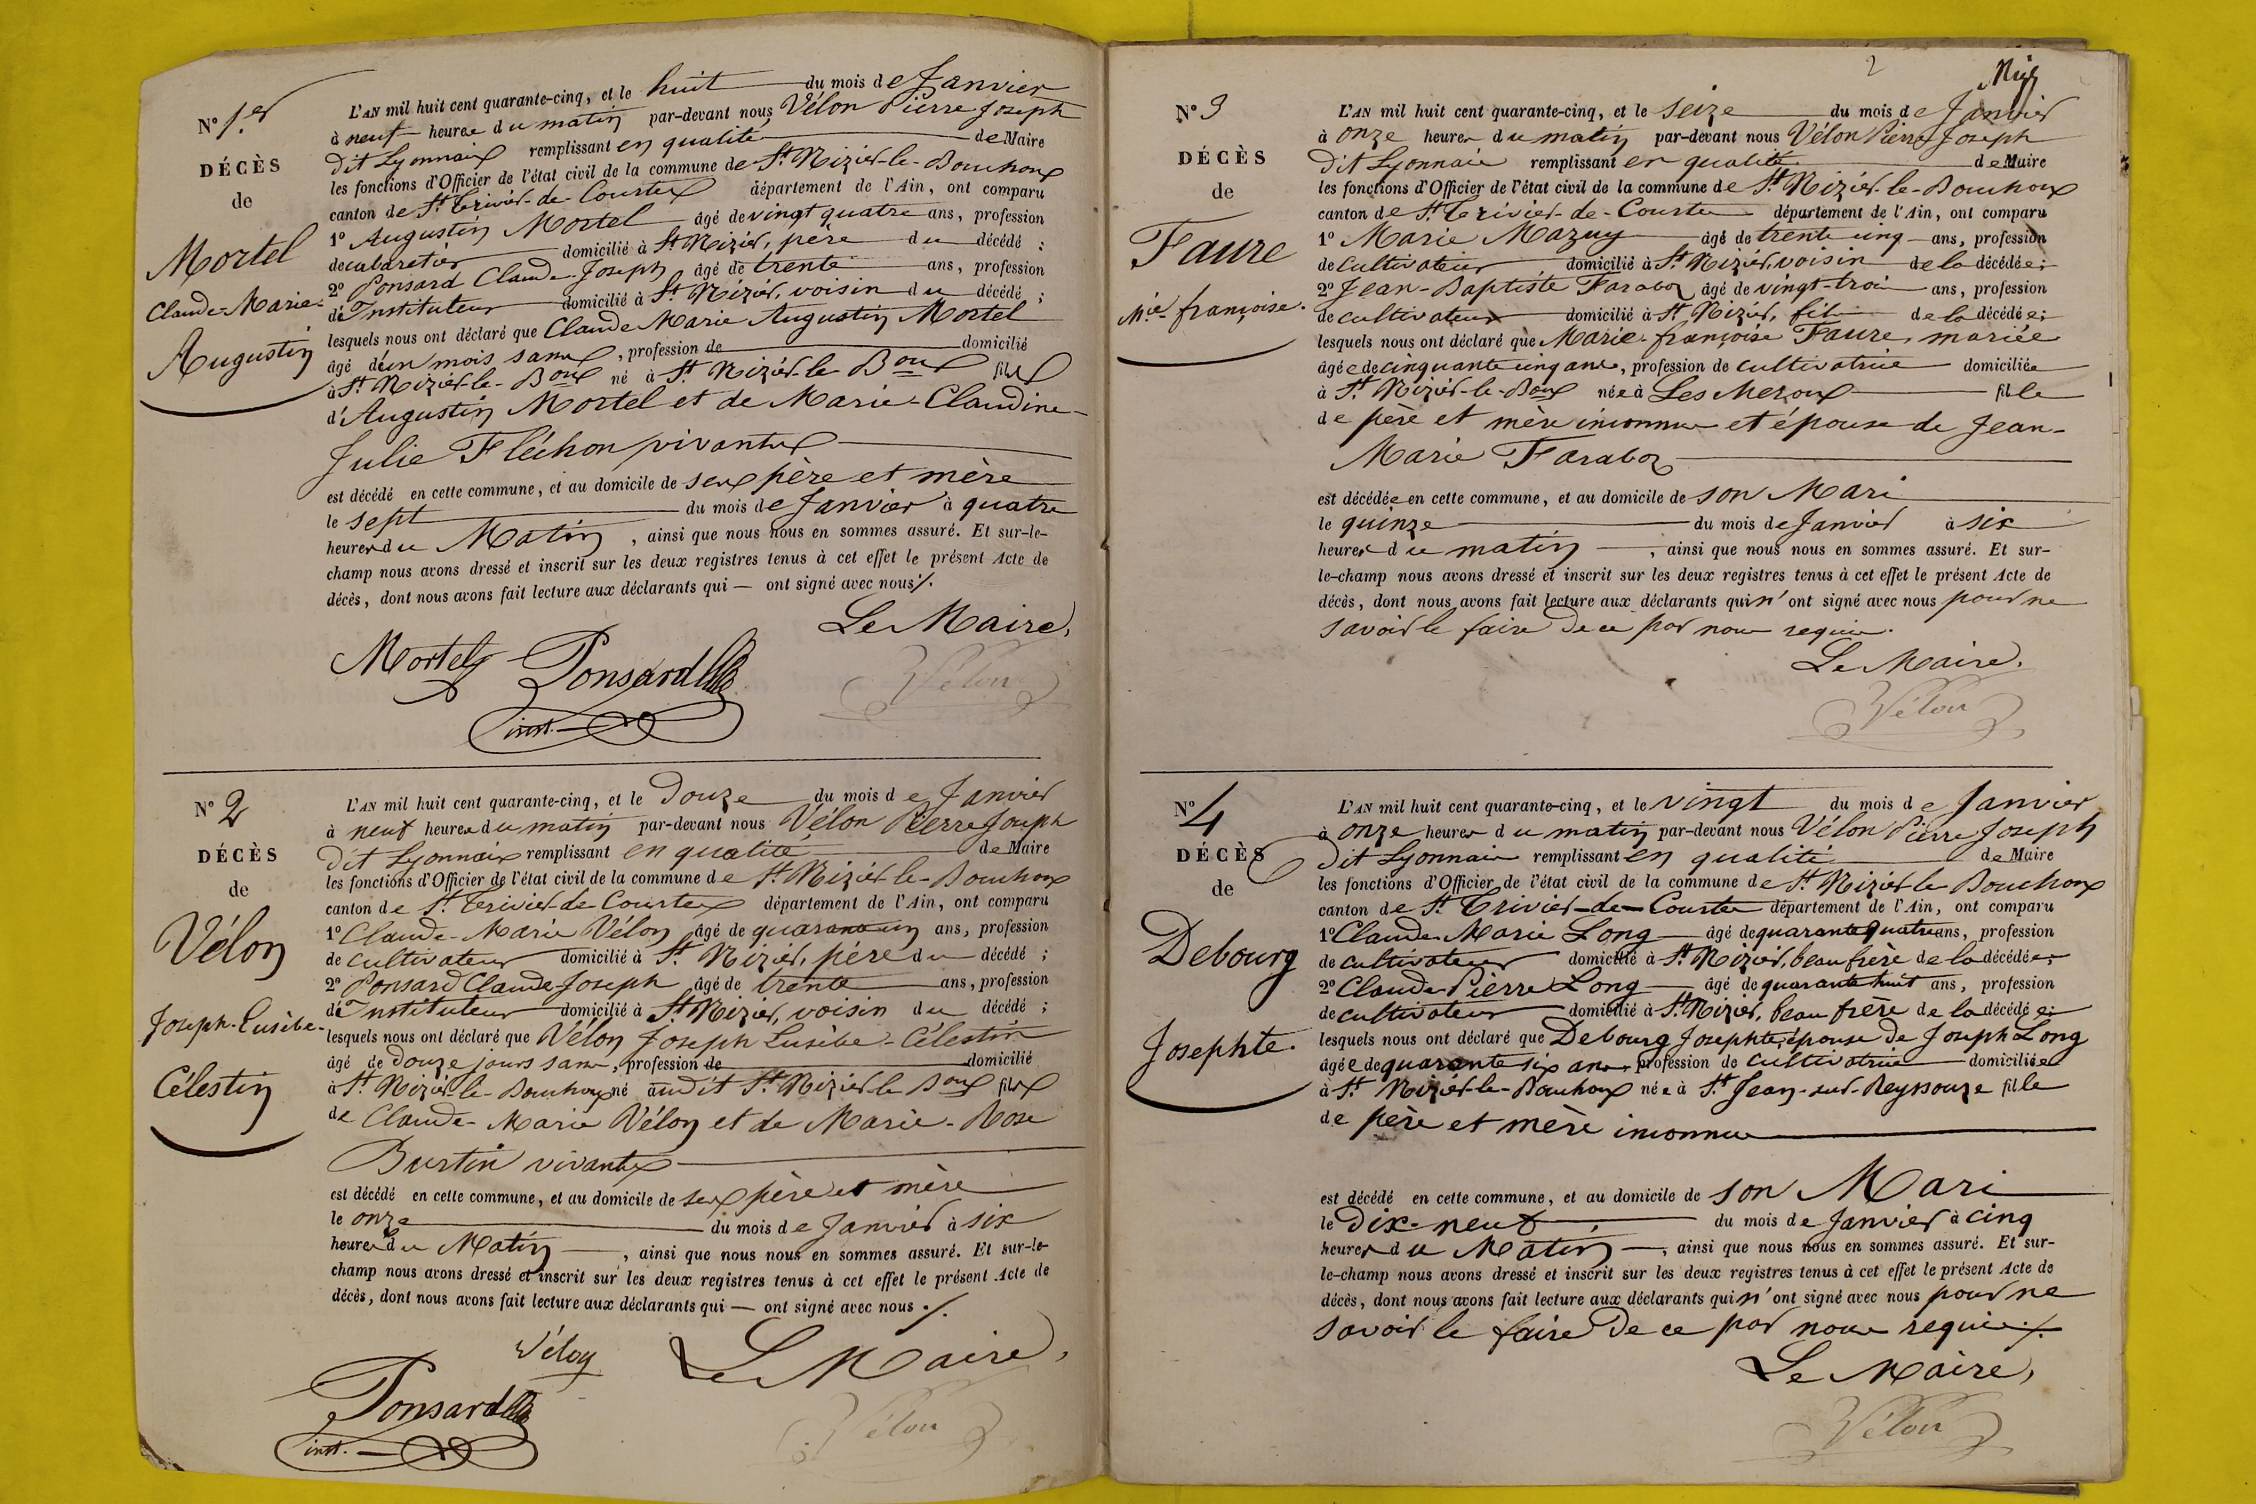 N° 1.er
DÉCÈS
de
Mortel
Claude-Marie-
Augustin
L'AN mil huit cent quarante-cinq, et le huit du mois de Janvier
à neuf heures du matin par-devant nous Vélon Pierre Joseph
dit Lyonnais remplissant en qualité de Maire
les fonctions d'Officier de l'état civil de la commune de St Nizier-le-Bouchoux
canton de St Trivier-de-Courtes département de l'Ain, ont comparu
1° Augustin Mortel âgé de vingt quatre ans, profession
de cabaretier domicilié à St Nizier, père du décédé ;
2° Ponsard Claude-Joseph âgé de trente ans, profession
d'Instituteur domicilié à St Nizier, voisin du décédé ;
lesquels nous ont déclaré que Claude Marie Augustin Mortel
âgé d'un mois sans, profession de domicilié
à St Nizier-le-Boux né à St Nizier-le Boux fils
d'Augustin Mortel et de Marie-Claudine-
Julie Fléchon vivants
est décédé en cette commune, et au domicile de ses père et mère
le sept du mois de Janvier à quatre
heures du Matin, ainsi que nous nous en sommes assuré. Et sur-le-
champ nous avons dressé et inscrit sur les deux registres tenus à cet effet le présent Acte de
décès, dont nous avons fait lecture aux déclarants qui — ont signé avec nous ./.
Le Maire,
Mortel Ponsard Vélon
inst.
N° 2
DÉCÈS
de
Vélon
Joseph-Eusèbe-
Célestin
L'AN mil huit cent quarante-cinq, et le Douze du mois de Janvier
à neuf heures du matin par-devant nous Vélon Pierre Joseph
dit Lyonnais remplissant en qualité de Maire
les fonctions d'Officier de l'état civil de la commune de St Nizier-le-Bouchoux
canton de St Trivier-de-Courtes département de l'Ain, ont comparu
1° Claude-Marie Vélon âgé de quarante un ans, profession
de cultivateur domicilié à St Nizier, père du décédé ;
2° Ponsard Claude-Joseph âgé de trente ans, profession
d'Instituteur domicilié à St Nizier, voisin du décédé ;
lesquels nous ont déclaré que Vélon Joseph Eusèbe-Célestin
âgé de douze jours sans, profession de domicilié
à St Nizier-le-Bouchoux né audit St Nizier-le Boux fils
de Claude-Marie Vélon et de Marie-Rose
Burtin vivants
est décédé en cette commune, et au domicile de ses père et mère
le onze du mois de Janvier à six
heures du Matin, ainsi que nous nous en sommes assuré. Et sur-le-
champ nous avons dressé et inscrit sur les deux registres tenus à cet effet le présent Acte de
décès, dont nous avons fait lecture aux déclarants qui — ont signé avec nous ./.
Vélon Le Maire,
Ponsard Vélon
inst.
2
N° 3
DÉCÈS
de
Faure
M.ie françoise.
L'AN mil huit cent quarante-cinq, et le seize du mois de Janvier
à onze heures du matin par-devant nous Vélon Pierre Joseph
dit Lyonnais remplissant en qualité de Maire
les fonctions d'Officier de l'état civil de la commune de St Nizier-le-Bouchoux
canton de St Trivier-de-Courtes département de l'Ain, ont comparu
1° Marie Mazuy âgé de trente cinq ans, profession
de cultivateur domicilié à St Nizier, voisin de la décédée ;
2° Jean-Baptiste Faraboz âgé de vingt-trois ans, profession
de cultivateur domicilié à St Nizier, fils de la décédée ;
lesquels nous ont déclaré que Marie-françoise Faure, mariée
âgée de cinquante cinq ans, profession de cultivatrice domiciliée
à St Nizier-le-Boux née à Les Meroux fille
de père et mère inconnus et épouse de Jean-
Marie Faraboz
est décédée en cette commune, et au domicile de son Mari
le quinze du mois de Janvier à six
heures du matin, ainsi que nous nous en sommes assuré. Et sur-
le-champ nous avons dressé et inscrit sur les deux registres tenus à cet effet le présent Acte de
décès, dont nous avons fait lecture aux déclarants qui n'ont signé avec nous pour ne
savoir le faire de ce par nous requis.
Le Maire.
Vélon
N° 4
DÉCÈS
de
Debourg
Josephte.
L'AN mil huit cent quarante-cinq, et le vingt du mois de Janvier
à onze heures du matin par-devant nous Vélon Pierre Joseph
dit Lyonnais remplissant en qualité de Maire
les fonctions d'Officier de l'état civil de la commune de St Nizier-le Bouchoux
canton de St Trivier-de-Courtes département de l'Ain, ont comparu
1° Claude-Marie Long âgé de quarante quatre ans, profession
de cultivateur domicilié à St Nizier, beau frère de la décédée ;
2° Claude-Pierre Long âgé de quarante huit ans, profession
de cultivateur domicilié à St Nizier, beau frère de la décédée ;
lesquels nous ont déclaré que Debourg Josephte, épouse de Joseph Long
âgée de quarante six ans, profession de cultivatrice domiciliée
à St Nizier-le-Bouchoux née à St Jean-sur-Reyssouze fille
de père et mère inconnus
est décédé en cette commune, et au domicile de son Mari
le Dix-neuf du mois de Janvier à cinq
heures du Matin, ainsi que nous nous en sommes assuré. Et sur-
le-champ nous avons dressé et inscrit sur les deux registres tenus à cet effet le présent Acte de
décès, dont nous avons fait lecture aux déclarants qui n'ont signé avec nous pour ne
savoir le faire de ce par nous requis ./.
Le Maire,
Vélon